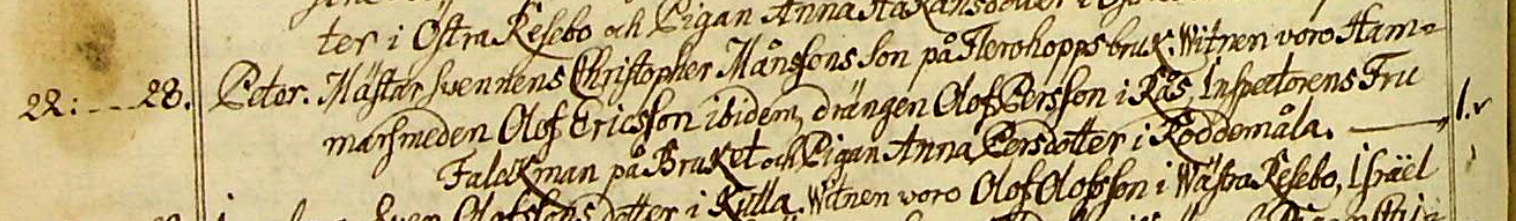 ter i Östra Kesebo och Pigan Anna Håkansdotter i
22: 28. Peter. Mästarsvennens Christopher Månssons Son på Flerohopps bruk. Witnen voro Ham-
marsmeden Olof Ericsson ibidem, drängen Olof Persson i Rås, Inspectorens Fru
Falckman på Bruket och Pigan Anna Persdotter i Roddemåla. 1.
Sven Olofssons dotter i Kulla. Witnen voro Olof Olofsson i Wästra Kesebo, Israël